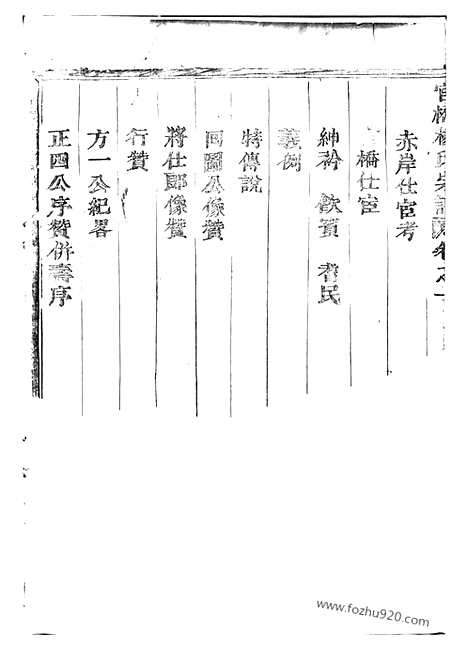 橋楊氏宗譜
赤岸仕宦考
橋仕宦
紳衿 飲賓 耆民
義例
特傳說
同圖公像贊
將仕郎像贊
行贊
方一公紀畧
正四公序贊併壽序
www.fozhu920.com